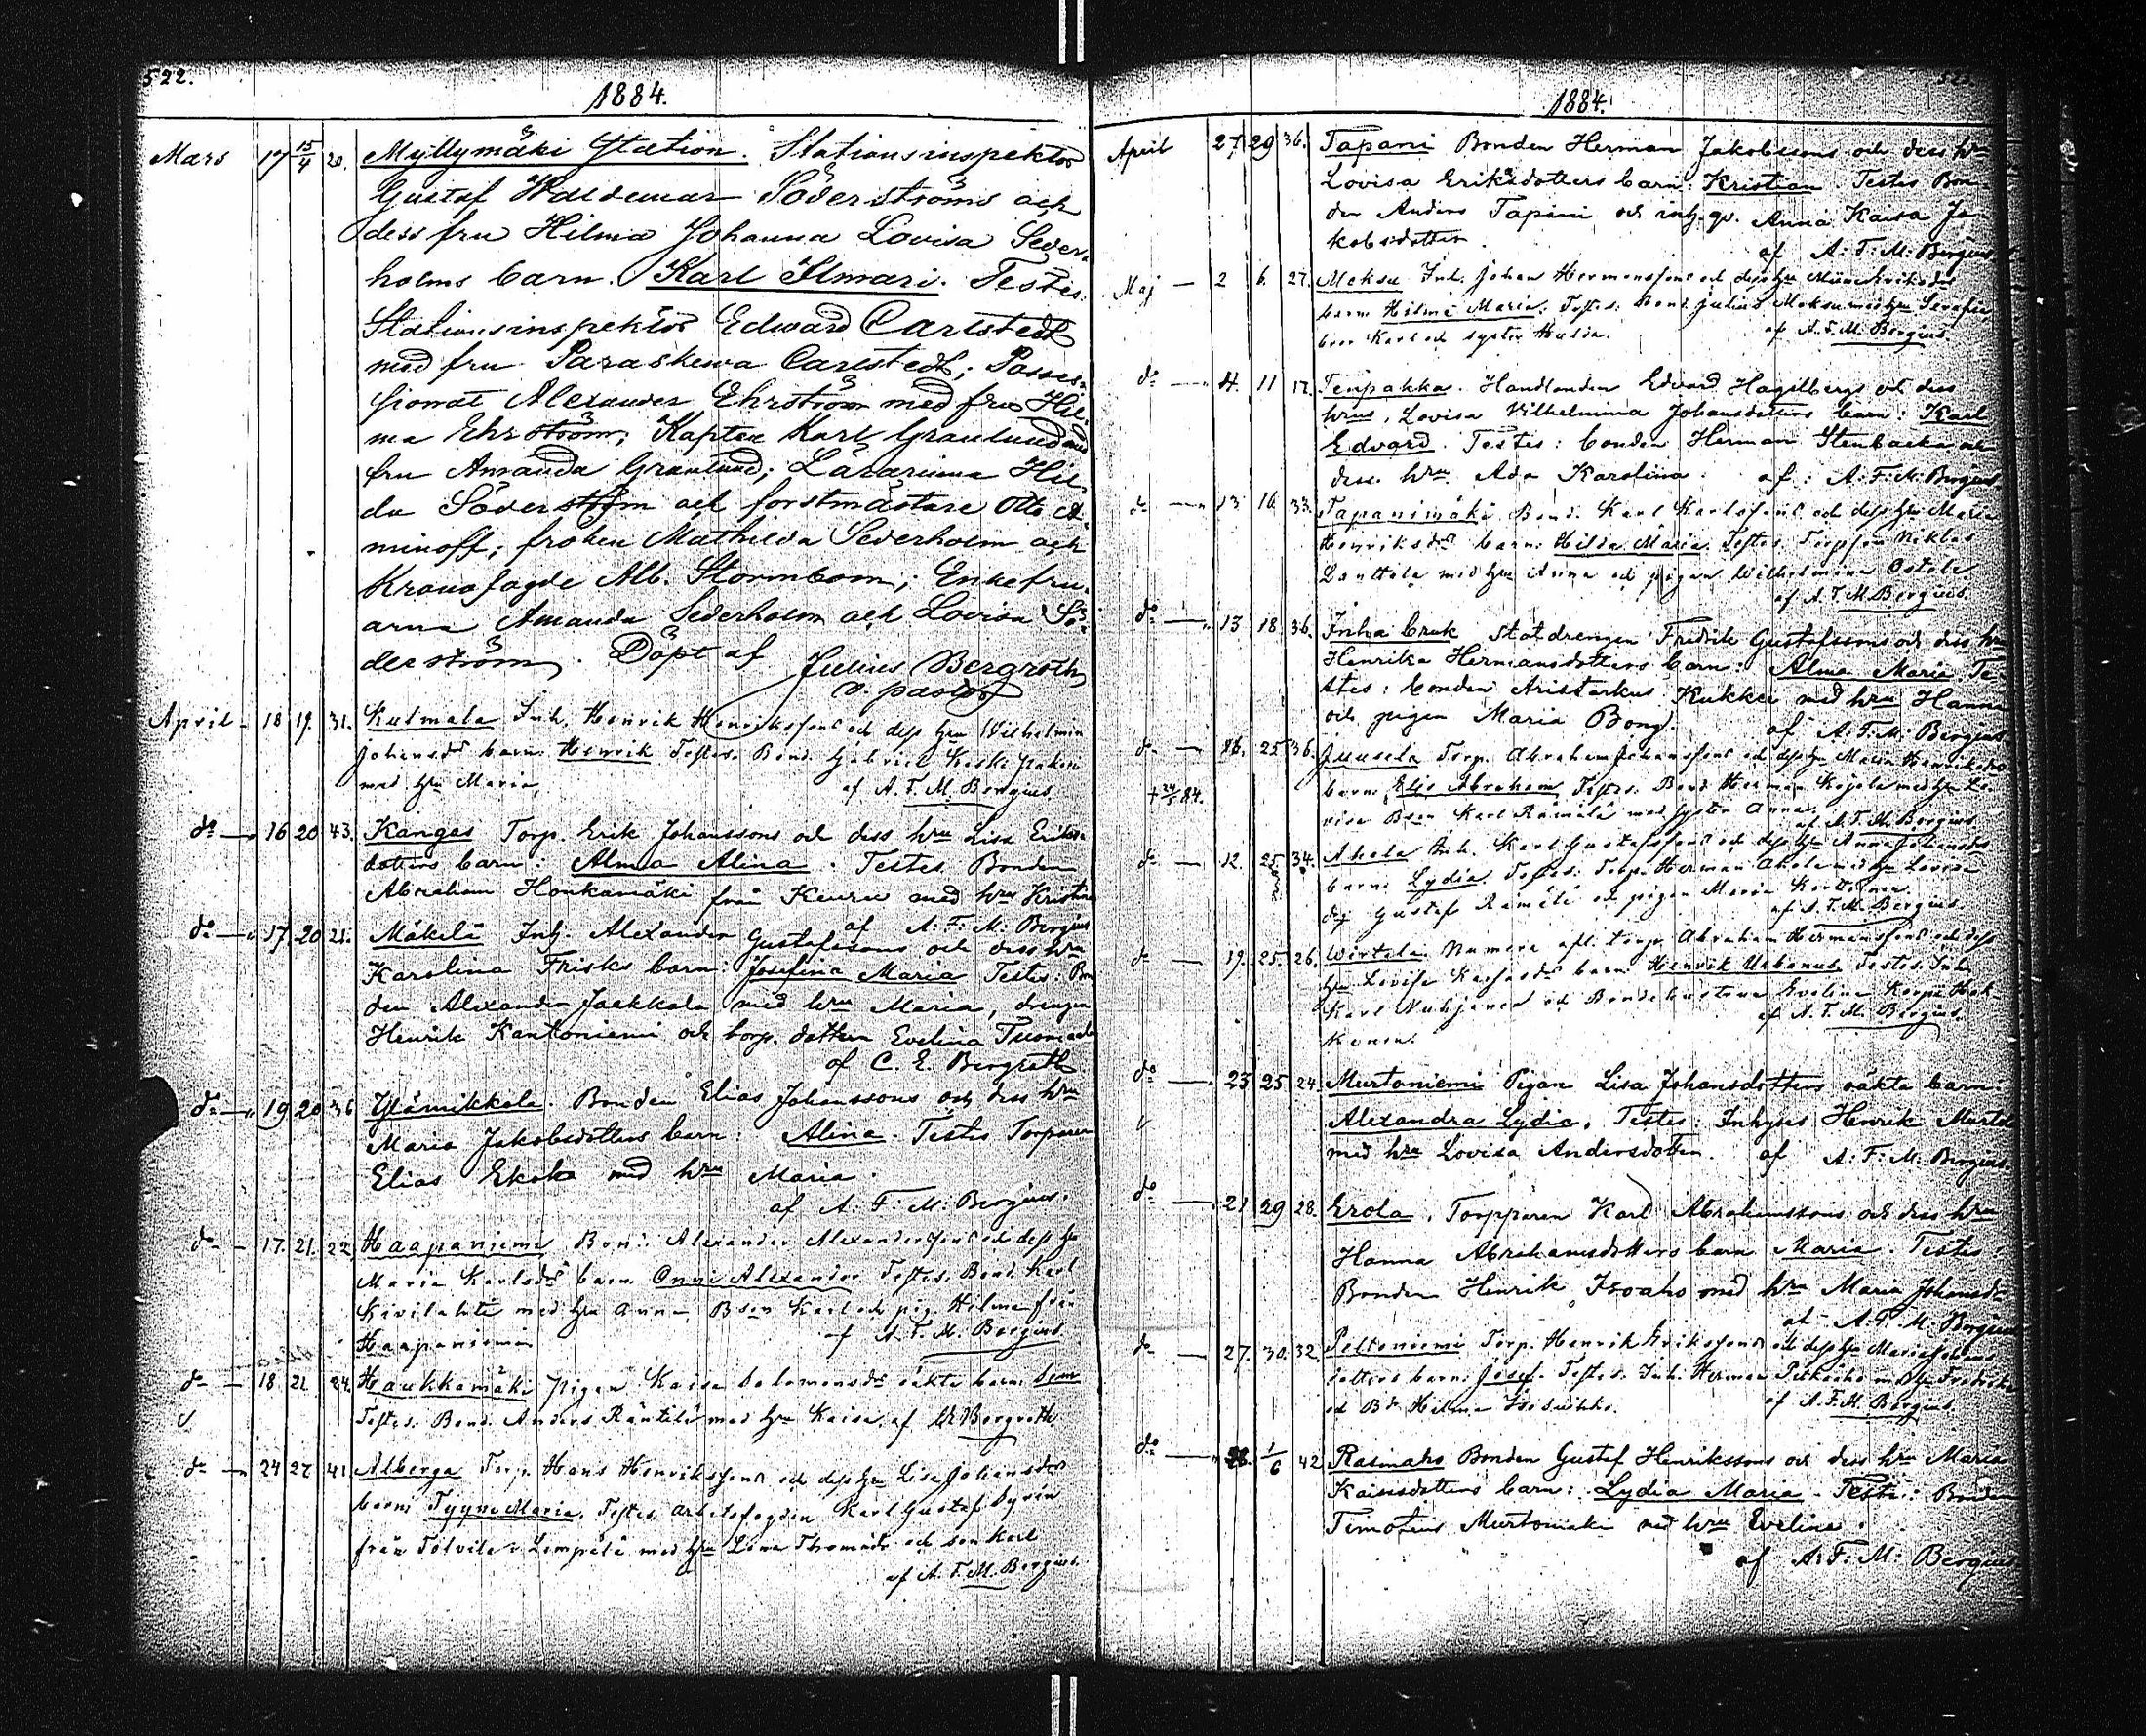 522.
1884.
Mars 17 15/4 20. Myllymäki Station. Stationsinspektor
Gustaf Waldemar Söderströms och
dess fru Hilma Johanna Lovisa Seder-
holms barn. Karl Ilmari. Testes:
Stationsinspektor Edward Carlstedt
med fru Paraskewa Carlstedt; Posses-
sionat Alexander Ehrström med fru Hil-
ma Ehrström; Kapten Karl Granlund med
fru Amanda Granlund; Lärarinna Hil-
da Söderström och forstmästare Otto A-
minoff; fröken Mathilda Sederholm och
Kronofogde Alb. Stormbom; Enkefru-
arna Amanda Sederholm och Lovisa Sö-
derström. Döpt af Julius Bergroth
v. pastor
April 18 19. 31. Kulmala Inh. Henrik Henrikssons och dess hu Wilhelmin
Johansdr barn: Henrik Testes. Bond. Gabriel Keski
med hu Maria, af A. F. M. Bergius
do 16 20 43. Kangas Torp. Erik Johanssons och dess hru Lisa Eriks-
dotters barn: Alma Alina. Testes Bonden
Abraham Honkamäki från Keuru med hru Kristina
af A. F. M. Bergius
do 17 20 21. Mäkelä Inh. Alexander Gustafssons och dess hru
Karolina Frisks barn: Josefina Maria Testes: Bon-
den Alexander Jaakkola med hru Maria, drengen
Henrik Kantoniemi och torp. dottern Evelina
af C. E. Bergroth
do 19 20 36 Ylämikkola. Bonden Elias Johanssons och dess hru
Maria Jakobsdotters barn: Alina. Testes Torparen
Elias Ekoka med hru Maria.
af A. F. M. Bergius.
do 17. 21. 22 Haapaniemi Bond. Alexander Alexanderssons och dess hu
Maria Karlsdr barn. Onni Alexander Testes. Bond. Karl
Kivilahti med hu Anna, Bson Karl och pig. Hilma från
Haapaniemi af A. F. M. Bergius
do 18. 21. 24. Haukkamäki pigan Kaisa Salomonsdr oäkta barn:
Testes. Bond. Anders Räntilä med hu Kaisa. af Bergroth
do 24 27 41. Alberga Torp. Hans Henrikssons och dess hu Lisa Johansdr
barn: Tyyne Maria. Testes. arbetsfogden Karl Gustaf
från i Lempälä med hu Lena och son Karl
af A. F. M. Bergius.
1884.
April 27. 29 36. Tapani Bonden Herman Jakobssons och dess hru
Lovisa Eriksdotters barn: Kristian. Testes Bon-
den Anders Tapani och inh. qv. Anna Kaisa Ja-
kobsdotter. af A. F. M. Bergius
Maj 2 6. 27. Meksu Inh. Johan Hermanssons och dess hu
barn: Hilma Maria. Testes. Bond. Julius Meksu med hu Serafia
bror Karl och syster Hulda. af A. F. M. Bergius.
do 4. 11 17. Tenpakka. Handlanden Edvard Hagelbergs och dess
hrus, Lovisa Wilhelmina Johansdotters barn: Karl
Edvard. Testes: bonden Herman Stenbacka och
dess hru Ada Karolina. af: A. F. M. Bergius.
13 16 33. Tapanimäki Bond. Karl Karlssons och dess hu Maria
Henriksdr barn: Hilda Maria. Testes. Niklas
med hu Anna och pigan Wilhelmina Ostola.
af A. F. M. Bergius.
do 13 18 36. Inha bruk Statdrengen Fredrik Gustafssons och dess hru
Henrika Hermansdotters barn: Alma Maria Te-
stes: bonden Aristarkus Kukkee med hru Hanna
och pigan Maria Bong. af A. F. M. Bergius.
do 25 36. Juusela Torp. Abraham Johanssons och dess hu Maria Henriksdr
+ 24/5 84. barn: Elis Abraham Testes. Bond. Herman med hu Lo-
visa Bson Karl Rämälä med syster Anna.
af A. F. M. Bergius
do 12. 25 34. Ahola Inh. Karl Gustafssons och dess hu Anna Johansdr
barn: Lydia. Testes. Torp. Herman Ahola med hu Lovisa
drg Gustaf Rämälä och pigan Maria
af A. F. M. Bergius.
do 19. 25. 26. Wirtala Numera afl. torp. Abraham Hermanssons och dess
hu Lovisa barn: Henrik Urbanus. Testes. Inh.
Karl och Bondehustrun Evelina Korpi Hak-
konen. af A. F. M. Bergius.
do 23 25 24. Murtoniemi Pigan Lisa Johansdotters oäkta barn:
Alexandra Lydia. Testes: Inhyses Henrik
med hru Lovisa Andersdotter. af A. F. M. Bergius.
do 21 29 28. Erola. Torpparen Karl Abrahamssons och dess hru
Hanna Abrahamsdotters barn Maria. Testes:
Bonden Henrik Isoaho med hru Maria Johansdr
af A. F. M. Bergius
do 27. 30. 32. Peltoniemi Torp. Henrik Erikssons och dess hu Maria Johans-
dotters barn: Josef. Testes. Inh. Herman med hu Fredrika
och Bdr Hilma af A. F. M. Bergius.
do 28. 1/6 42 Rasinaho Bonden Gustaf Henrikssons och dess hru Maria
Kaisasdotters barn: Lydia Maria. Teste: Bonden
Timoteus Murtomäki med hru Evelina.
af A. F. M. Bergius